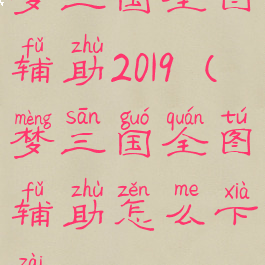 梦三国全图
fǔ zhù
辅助2019（
mèng sān guó quán tú
梦三国全图
fǔ zhù zěn me xià
辅助怎么下
zài